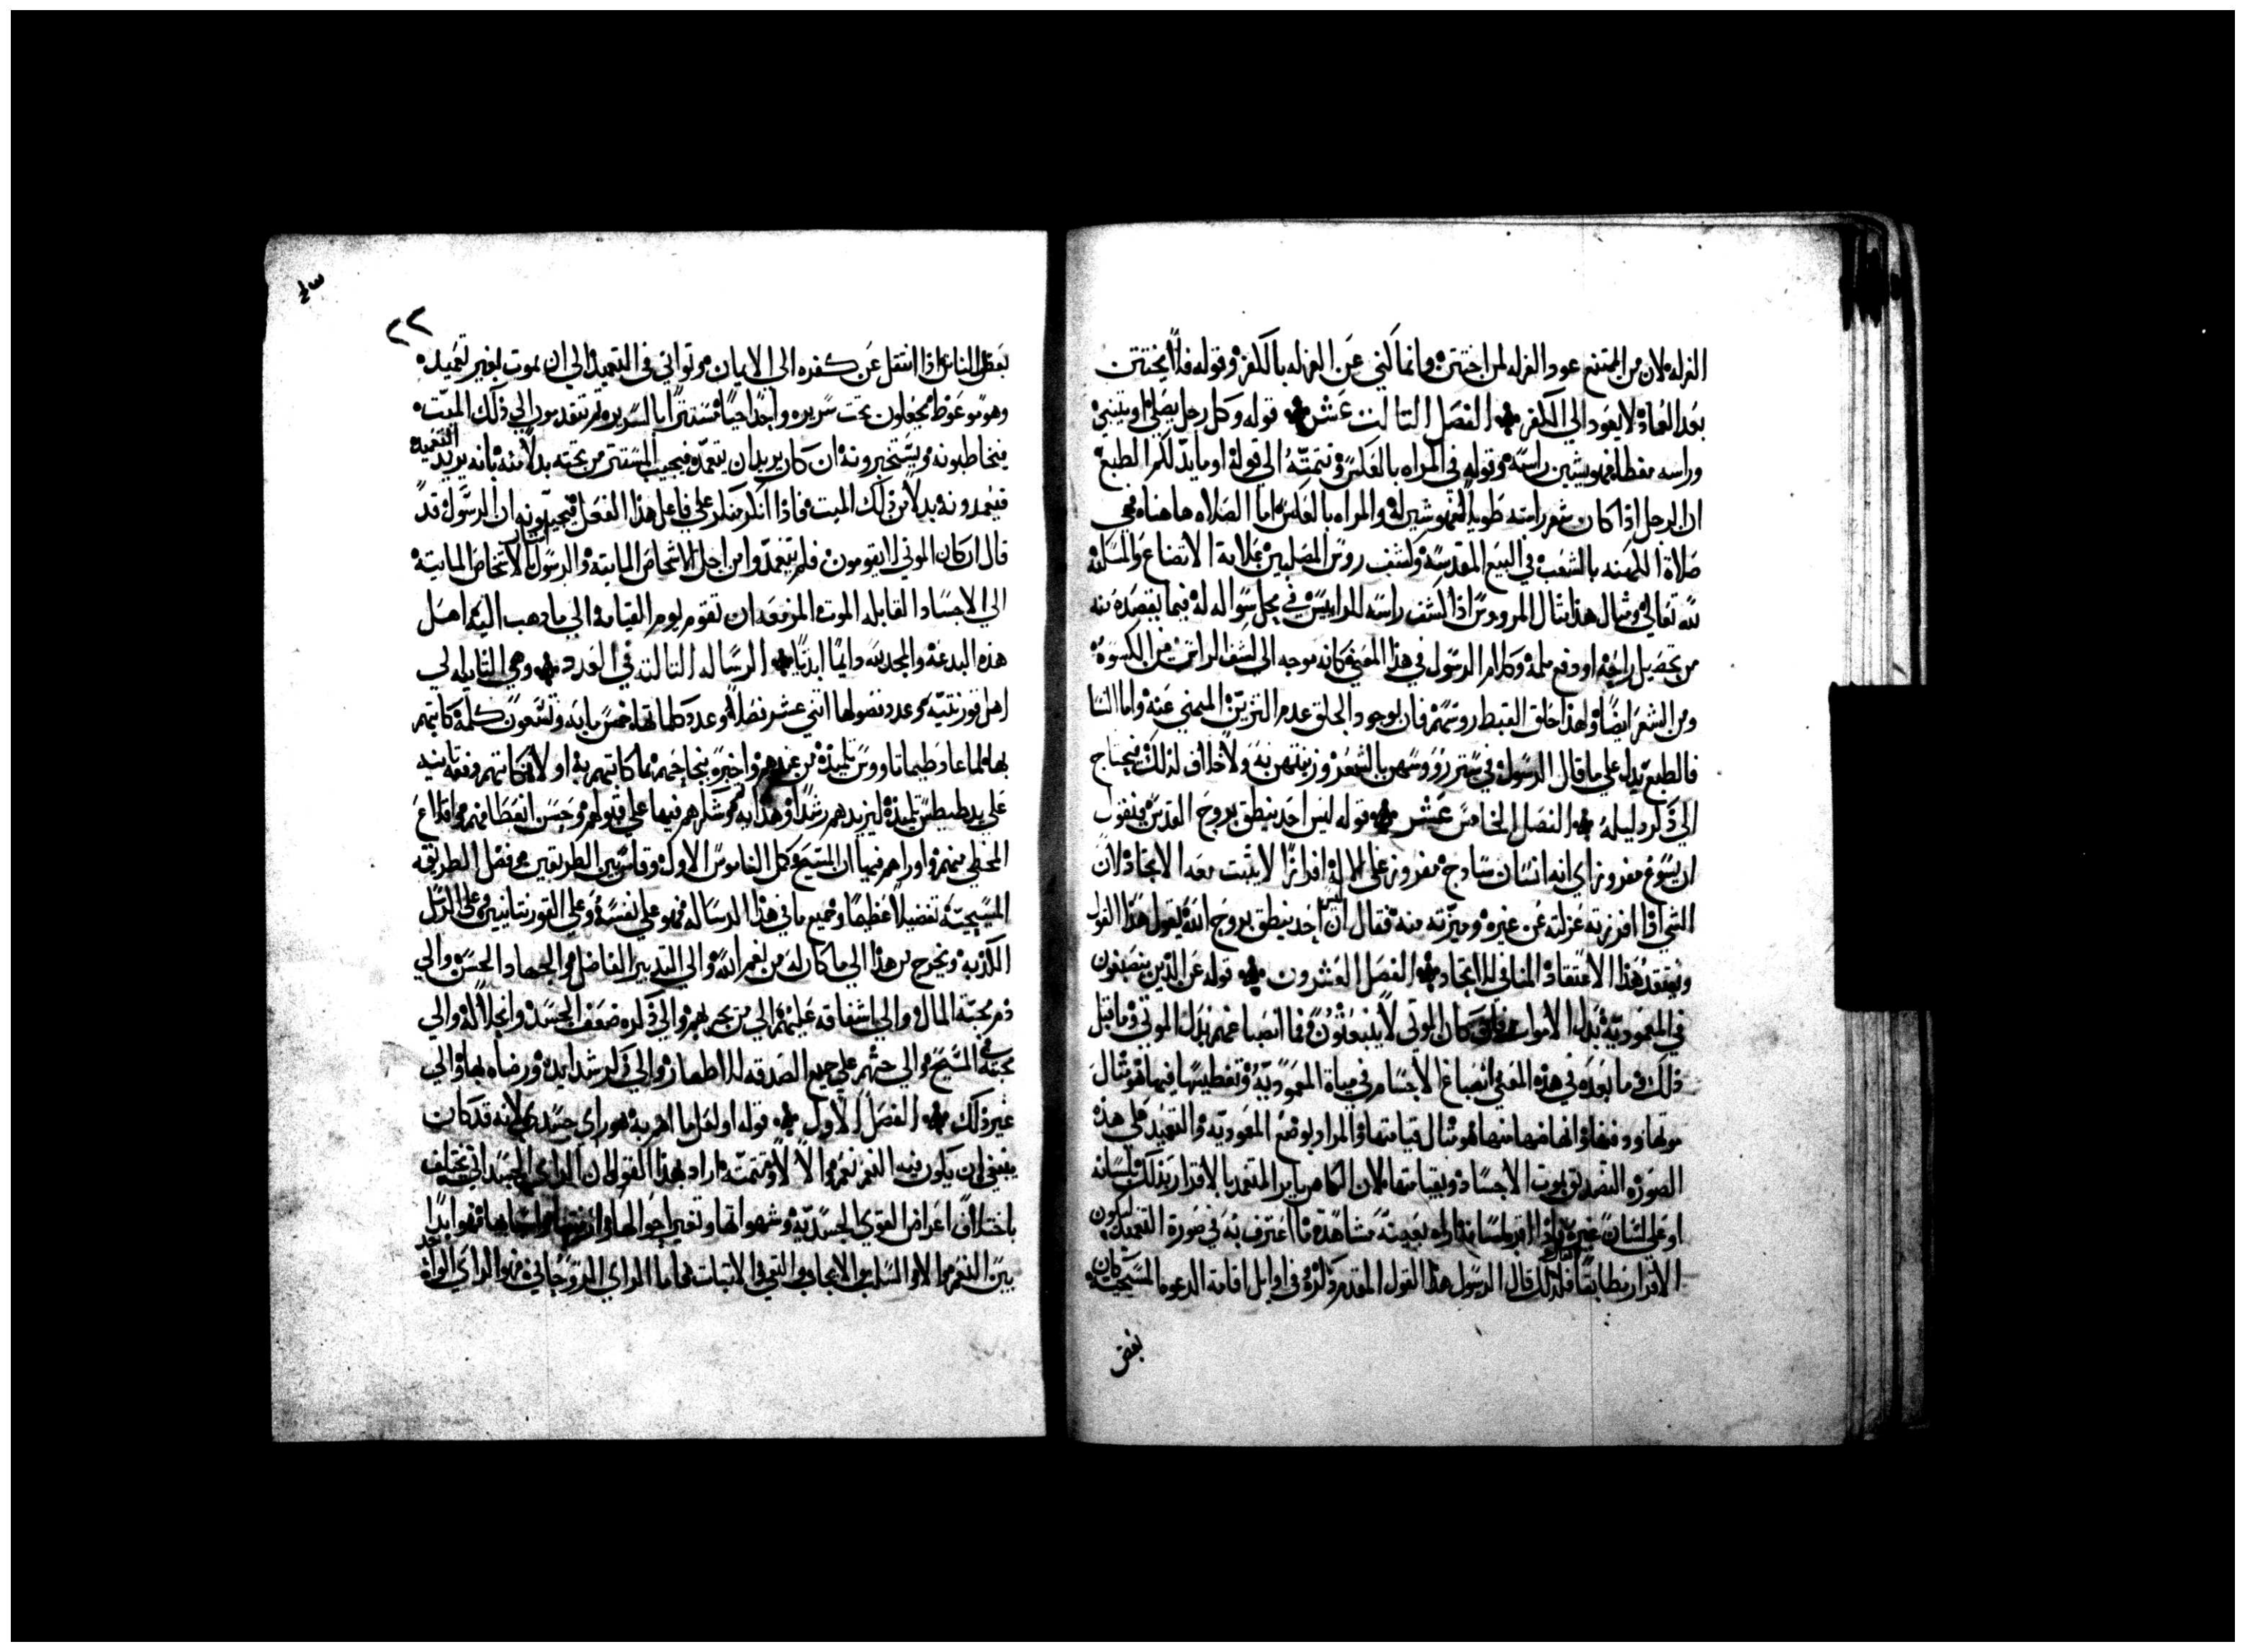 الغرله لان من الممتنع عود الغرله لمن اختتن وانما كني عن الغرله بالكفر وقوله فلا يختتن
بعد العماد لا يعود الي الكفر الفصل الثالث عشر قوله وكل رجل يصلي او يتنبي
وراسه مغطا فهو يشين راسه وقوله في المراه بالعكس وتتمته الي قوله او ما يدلكم الطبع
ان الرجل اذا كان شعر راسه طويلا فهو شين له والمراه بالعكس اما الصلاه هاهنا فهي
صلاة الكهنه بالشعب في البيع المقدسه وكشف روس المصليين علامة الاتضاع والمسكنه
لله تعالي ومثال هذا مثال المرووس اذا كشف راسه للراييس في محل سواله له فيما يقصده منه
من تحصيل راحه او دفع ملمه وكلام الرسول في هذا المعني كانه موجه الي كشف الراس من الكسوه
ومن الشعر ايضا ولهذا حلق القبط روسهم فان بوجود الحلق عدم التزين المنهي عنه واما النسا
فالطبع يدل علي ما قال الرسول في ستر رووسهن بالشعر وزينتهن به ولا خلاف لذلك يحتاج
الي ذكر دليله الفصل الخامس عشر قوله ليس احد ينطق بروح القدس فيقول
ان يسوع مفروز اي انه انسان سادج مفروز عن الاله افرازا لا يثبت معه الاتحاد لان
الشي اذا افرزته عزلته عن غيره وميزته منه فقال ان ليس احد ينطق بروح الله يقول هذا القول
ويعتقد هذا الاعتقاد المنافي للاتحاد الفصل العشرون قوله عن الذين ينصبغون
في المعموديه بدل الاموات كان الموتي لا ينبعثون فما انصباغهم بدل الموتي وما قبل
ذلك وما بعده في هذه المعني انصباغ الاجسام في مياه المعموديه وتغطيسها فيها هو مثال
موتها ودفنها وانهاضها منها هو مثال قيامتها والمراد بوضع المعموديه والتعميد علي هذه
الصوره التصديق بموت الاجساد وبقيامتها لان الكاهن يامر المتعمد بالاقرار بذلك بلسانه
او علي لسان غيره فاذا اقر لسانه اراه بعينه مشاهدة ما اعترف به في صورة التعميد ليكون
الاقرار مطابقا فلذلك قال الرسول هذا القول المقدم ذكره وفي اوايل اقامة الدعوه المسيحيه كان
بعض
٢٢
بعض الناس اذا انتقل عن كفره الي الايمان وتواني في التعميد الي ان يموت بغير تعميده
وهو موعوظ يجعلون تحت سريره واحدا حيا مستترا بالسرير ثم يتقدمون الي ذلك الميت
فيخاطبونه ويستخبرونه ان كان يريد ان يتعمد فيجيب المستتر من تحته بدلا منه بانه يريد التعميد
فيعمدونه بدلا من ذلك الميت فاذا انكر منكر علي فاعل هذا الفعل فيجيبونه ان الرسول قد
قال ان كان الموتي لا يقومون فلم يتعمدوا من اجل الاشخاص المايته والرسول اشار بالاشخاص المايته
الي الاجساد القابله الموت المزمعه ان تقوم يوم القيامه لا الي ما ذهب اليه اهل
هذه البدعه والمجد لله دايما ابديا الرساله الثالثه في العدد وهي الثانيه الي
اهل قورنتيه وعدد فصولها اثني عشر فصلا وعدد كلماتها خمس مايه وتسعون كلمه كاتبهم
بها لما عاد طيماتاووس تلميذه من عندهم واخبره بنجاحهم بما كاتبهم به اولا فكاتبهم دفعه ثانيه
علي يد طيطس تلميذه ليزيدهم رشدا وهدايه وشكرهم فيها علي قبولهم وحسن اتعظاهم واقلاع
المخطي منهم واوراهم فيها ان المسيح كمل الناموس الاول وقاس بين الطريقين وفضل الطريقه
المسيحيه تفضيلا عظيما وجميع ما في هذا الرساله فهو علي نفسه وعلي القورنتانيين وعلي الرسل
الكدبه وتخرج من هذا الي ما كان له من نعم الله والي التدبير الفاضل والجهاد الحسن والي
ذم محبة المال والي اشفاقه عليهم والي من يجربهم والي ذكره ضعف الجسد وانحلاله والي
محبته في المسيح والي حثهم علي جميع الصدقه للاطهار والي ذكر شدايده ورضاه بها والي
غير ذلك الفصل الاول قوله او لعل ما اهم به هو راي جسدي لانه قد كان
ينبغي ان يكون فيه النعم نعم والا لا وتتمته اراد بهذا القول ان الراي الجسداني يختلف
باختلاف اعراض القوي الجسديه وشهواتها وتغير احوالها فهو ابدا
بين النعم والا والسلب والايجاب والنفي والاثبات فاما الراي الروحاني فهو الراي الواحد